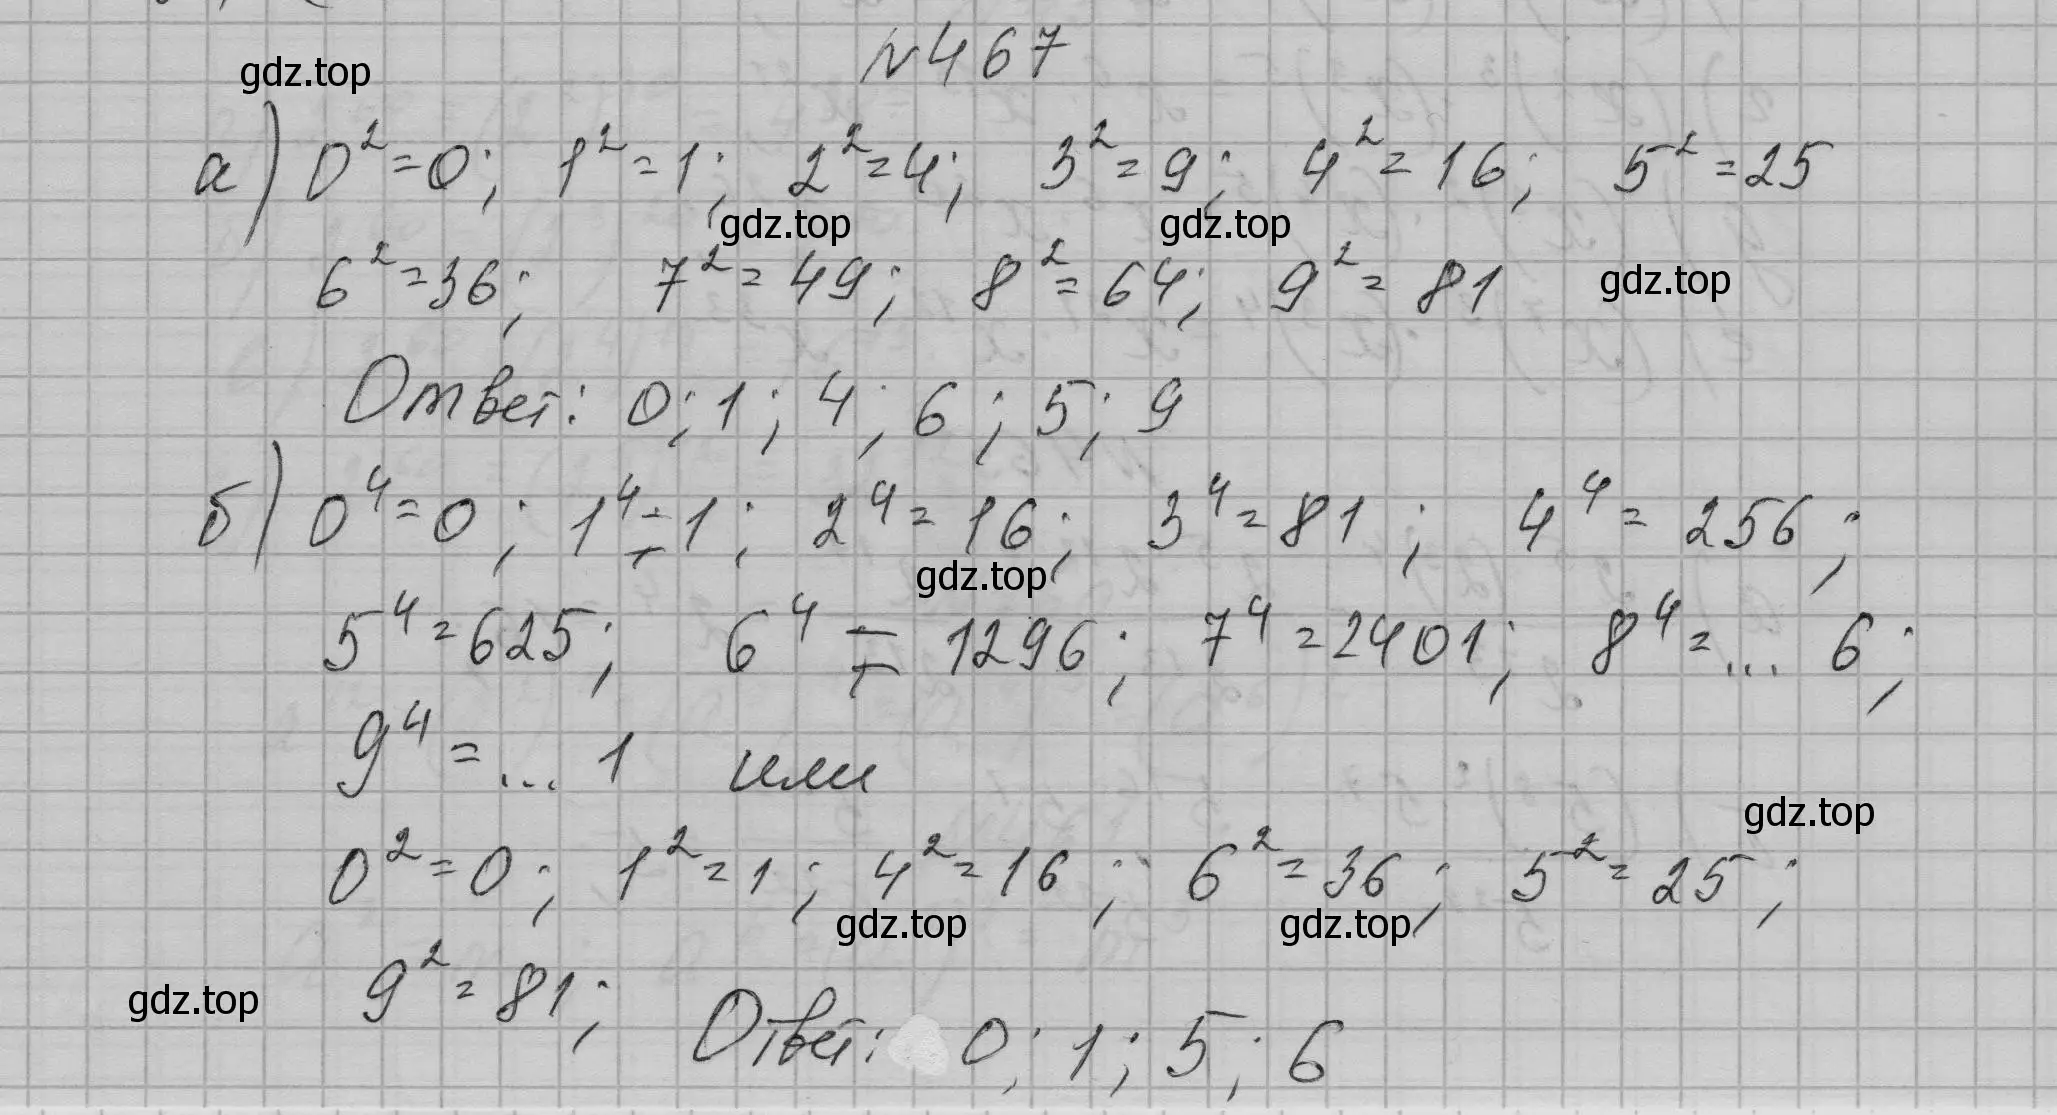 №467
gdz.top
а) 0²=0; 1²=1; 2²=4; 3²=9; 4²=16; 5²=25
gdz.top gdz.top
6²=36; 7²=49; 8²=64; 9²=81
gdz.top
Ответ: 0; 1; 4; 6; 5; 9
б) 0⁴=0; 1⁴=1; 2⁴=16; 3⁴=81; 4⁴=256;
gdz.top
5⁴=625; 6⁴=1296; 7⁴=2401; 8⁴=... 6;
9⁴=... 1 или
gdz.top
0²=0; 1²=1; 4²=16; 6²=36; 5²=25;
gdz.top gdz.top
9²=81;
gdz.top
Ответ: 0; 1; 5; 6